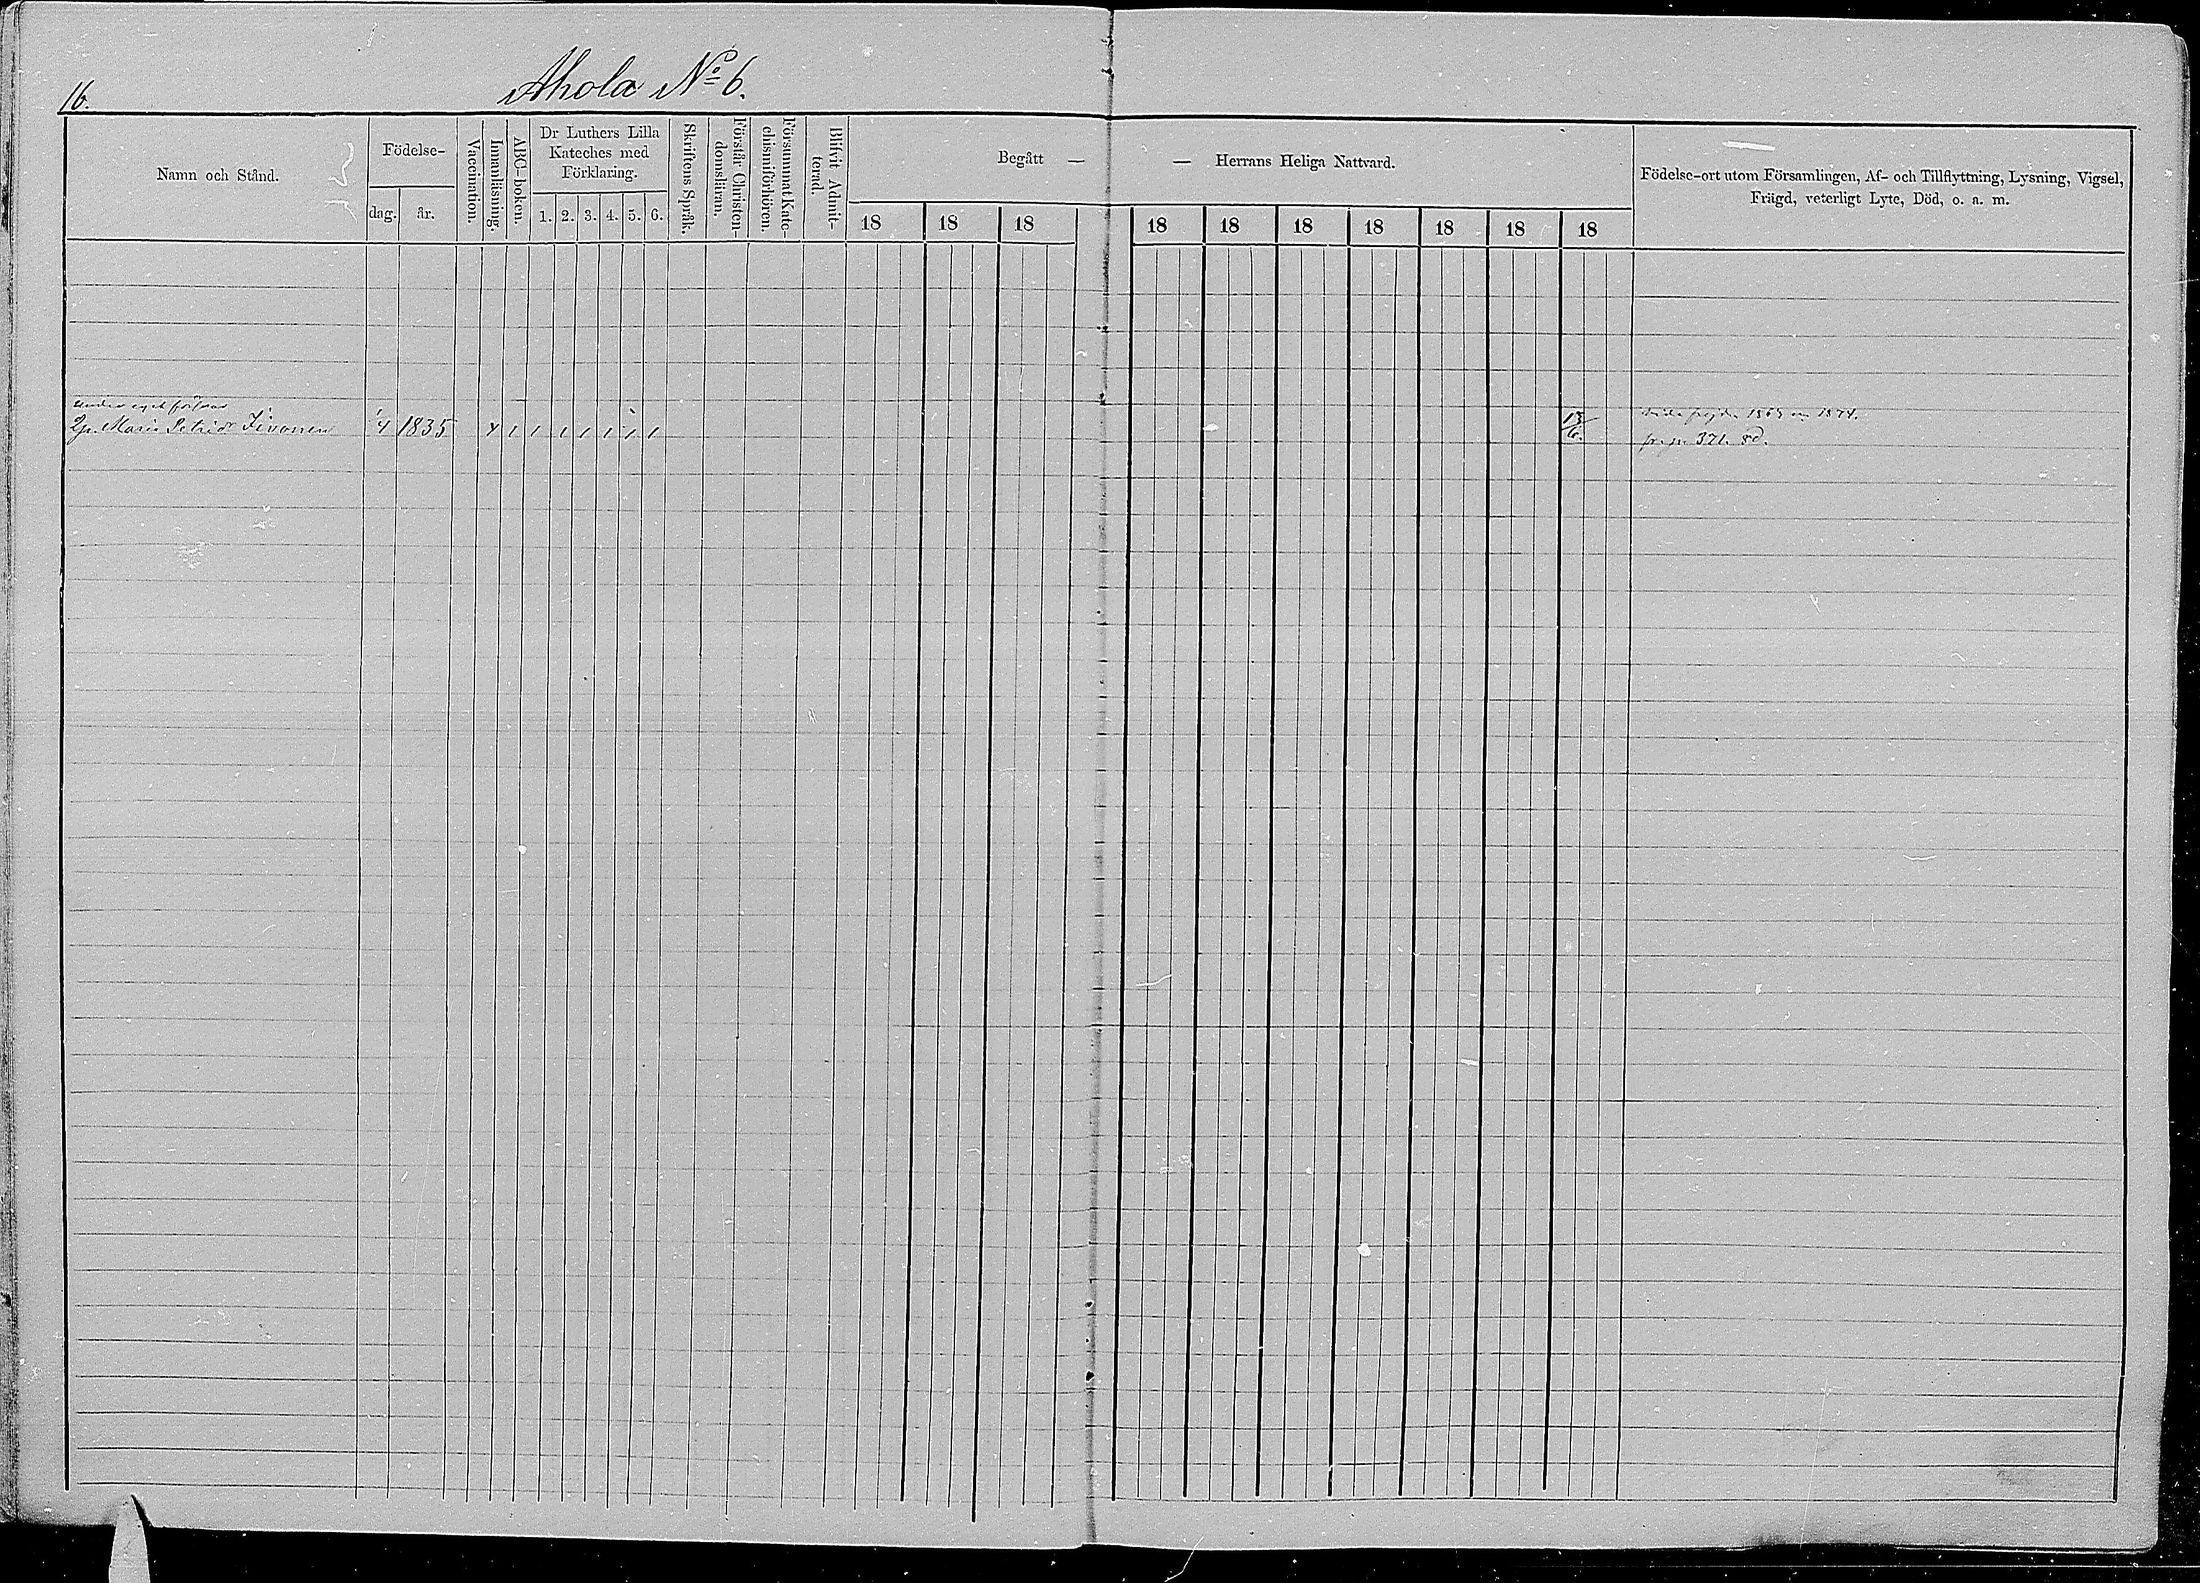 16.
Ahola No 6.
Namn och Stånd.
Födelse-
dag.
år.
Vaccination.
Innanläsning.
ABC-boken.
Dr Luthers Lilla
Kateches med
Förklaring.
1. 2. 3. 4. 5. 6.
Skriftens Språk.
Förstår Christen-
domsläran.
Försummat Kate-
chismiförhören.
Blifvit Admit-
terad.
Begått —
— Herrans Heliga Nattvard.
18 18 18
18 18 18 18 18 18 18
Födelse-ort utom Församlingen, Af- och Tillflyttning, Lysning, Vigsel,
Frägd, veterligt Lyte, Död, o. a. m.
under eget försvar
Maria Petrid:r 1835
13/6.
1874.
371.